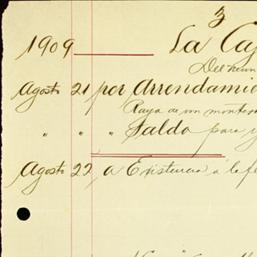 3
1909 La Caj
Del
Agosto 21 por Arrendamie
Raya de un
" " " Saldo para
Agosto 22 a Existencia á la fe